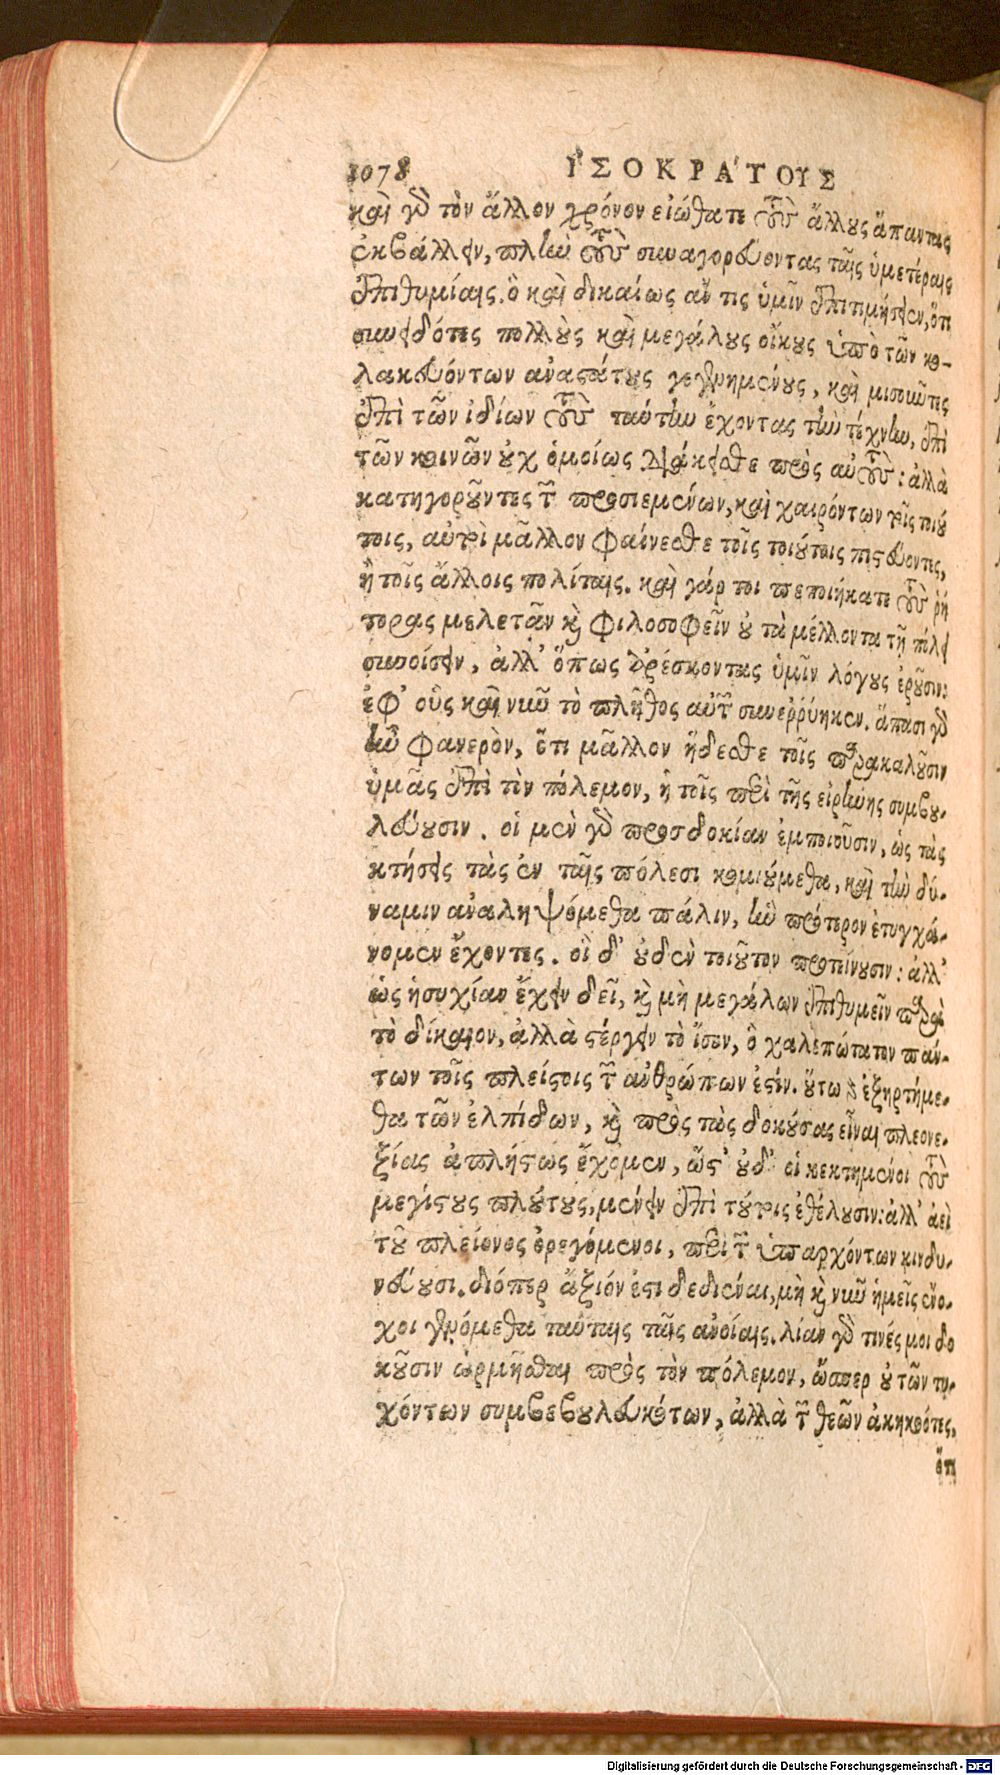 1078 ἸΣΟΚΡΆΤΟΥΣ
καὶ γὰρ τὸν ἄλλον χρόνον εἰώθατε τοὺς ἄλλους ἅπαντας
ἐκβάλλειν, πλὴν τοὺς συναγορεύοντας ταῖς ὑμετέραις
ἐπιθυμίαις. ὃ καὶ δικαίως ἄν τις ὑμῖν ἐπιτιμήσειεν, ὅτι
συνειδότες πολλοὺς καὶ μεγάλους οἴκους ὑπὸ τῶν κο-
λακευόντων ἀναστάτους γεγενημένους, καὶ μισοῦντες
ἐπὶ τῶν ἰδίων τοὺς ταύτην ἔχοντας τὴν τέχνην, ἐπὶ
τῶν κοινῶν οὐχ ὁμοίως διάκεισθε πρὸς αὐτούς: ἀλλὰ
κατηγοροῦντες τῶν προσιεμένων, καὶ χαιρόντων τοῖς τοιού
τοις, αὐτοὶ μᾶλλον φαίνεσθε τοῖς τοιούτοις πιστεύοντες,
ἢ τοῖς ἄλλοις πολίταις. καὶ γάρ τοι πεποιήκατε τοὺς ῥή
τορας μελετᾶν καὶ φιλοσοφεῖν οὐ τὰ μέλλοντα τῇ πόλει
συνοίσειν, ἀλλ' ὅπως ἀρέσκοντας ὑμῖν λόγους ἐροῦσιν:
ἐφ' οὓς καὶ νῦν τὸ πλῆθος αὐτῶν συνερρύηκεν. ἅπασι γὰρ
ἦν φανερὸν, ὅτι μᾶλλον ἥδεσθε τοῖς παρακαλοῦσιν
ὑμᾶς ἐπὶ τὸν πόλεμον, ἢ τοῖς περὶ τῆς εἰρήνης συμβου-
λεύουσιν. οἱ μὲν γὰρ προσδοκίαν ἐμποιοῦσιν, ὡς τὰς
κτήσεις τὰς ἐν ταῖς πόλεσι κομιούμεθα, καὶ τὴν δύ-
ναμιν ἀναληψόμεθα πάλιν, ἣν πρότερον ἐτυγχά-
νομεν ἔχοντες. οἱ δ' οὐδὲν τοιοῦτον προτείνουσιν: ἀλλ'
ὡς ἡσυχίαν ἔχειν δεῖ, καὶ μὴ μεγάλων ἐπιθυμεῖν παρὰ
τὸ δίκαιον, ἀλλὰ στέργειν τὸ ἴσον, ὃ χαλεπώτατον πάν-
των τοῖς πλείστοις τῶν ἀνθρώπων ἐστίν. οὕτω γὰρ ἐξηρτήμε-
θα τῶν ἐλπίδων, καὶ πρὸς τὰς δοκούσας εἶναι πλεονε-
ξίας ἀπλήστως ἔχομεν, ὥστ' οὐδ' οἱ κεκτημένοι τοὺς
μεγίστους πλούτους, μένειν ἐπὶ τούτοις ἐθέλουσιν: ἀλλ' ἀεὶ
τοῦ πλείονος ὀρεγόμενοι, περὶ τῶν ὑπαρχόντων κινδυ-
νεύουσι. διόπερ ἄξιόν ἐστι δεδιέναι, μὴ καὶ νῦν ἡμεῖς ἔνο-
χοι γενόμεθα ταύταις ταῖς ἀνοίαις. λίαν γὰρ τινές μοι δο
κοῦσιν ὡρμῆσθαι πρὸς τὸν πόλεμον, ὥσπερ οὐ τῶν τυ-
χόντων συμβεβουλευκότων, ἀλλὰ τῶν θεῶν ἀκηκοότες,
ὅτι
Digitalisierung gefördert durch die Deutsche Forschungsgemeinschaft - DFG